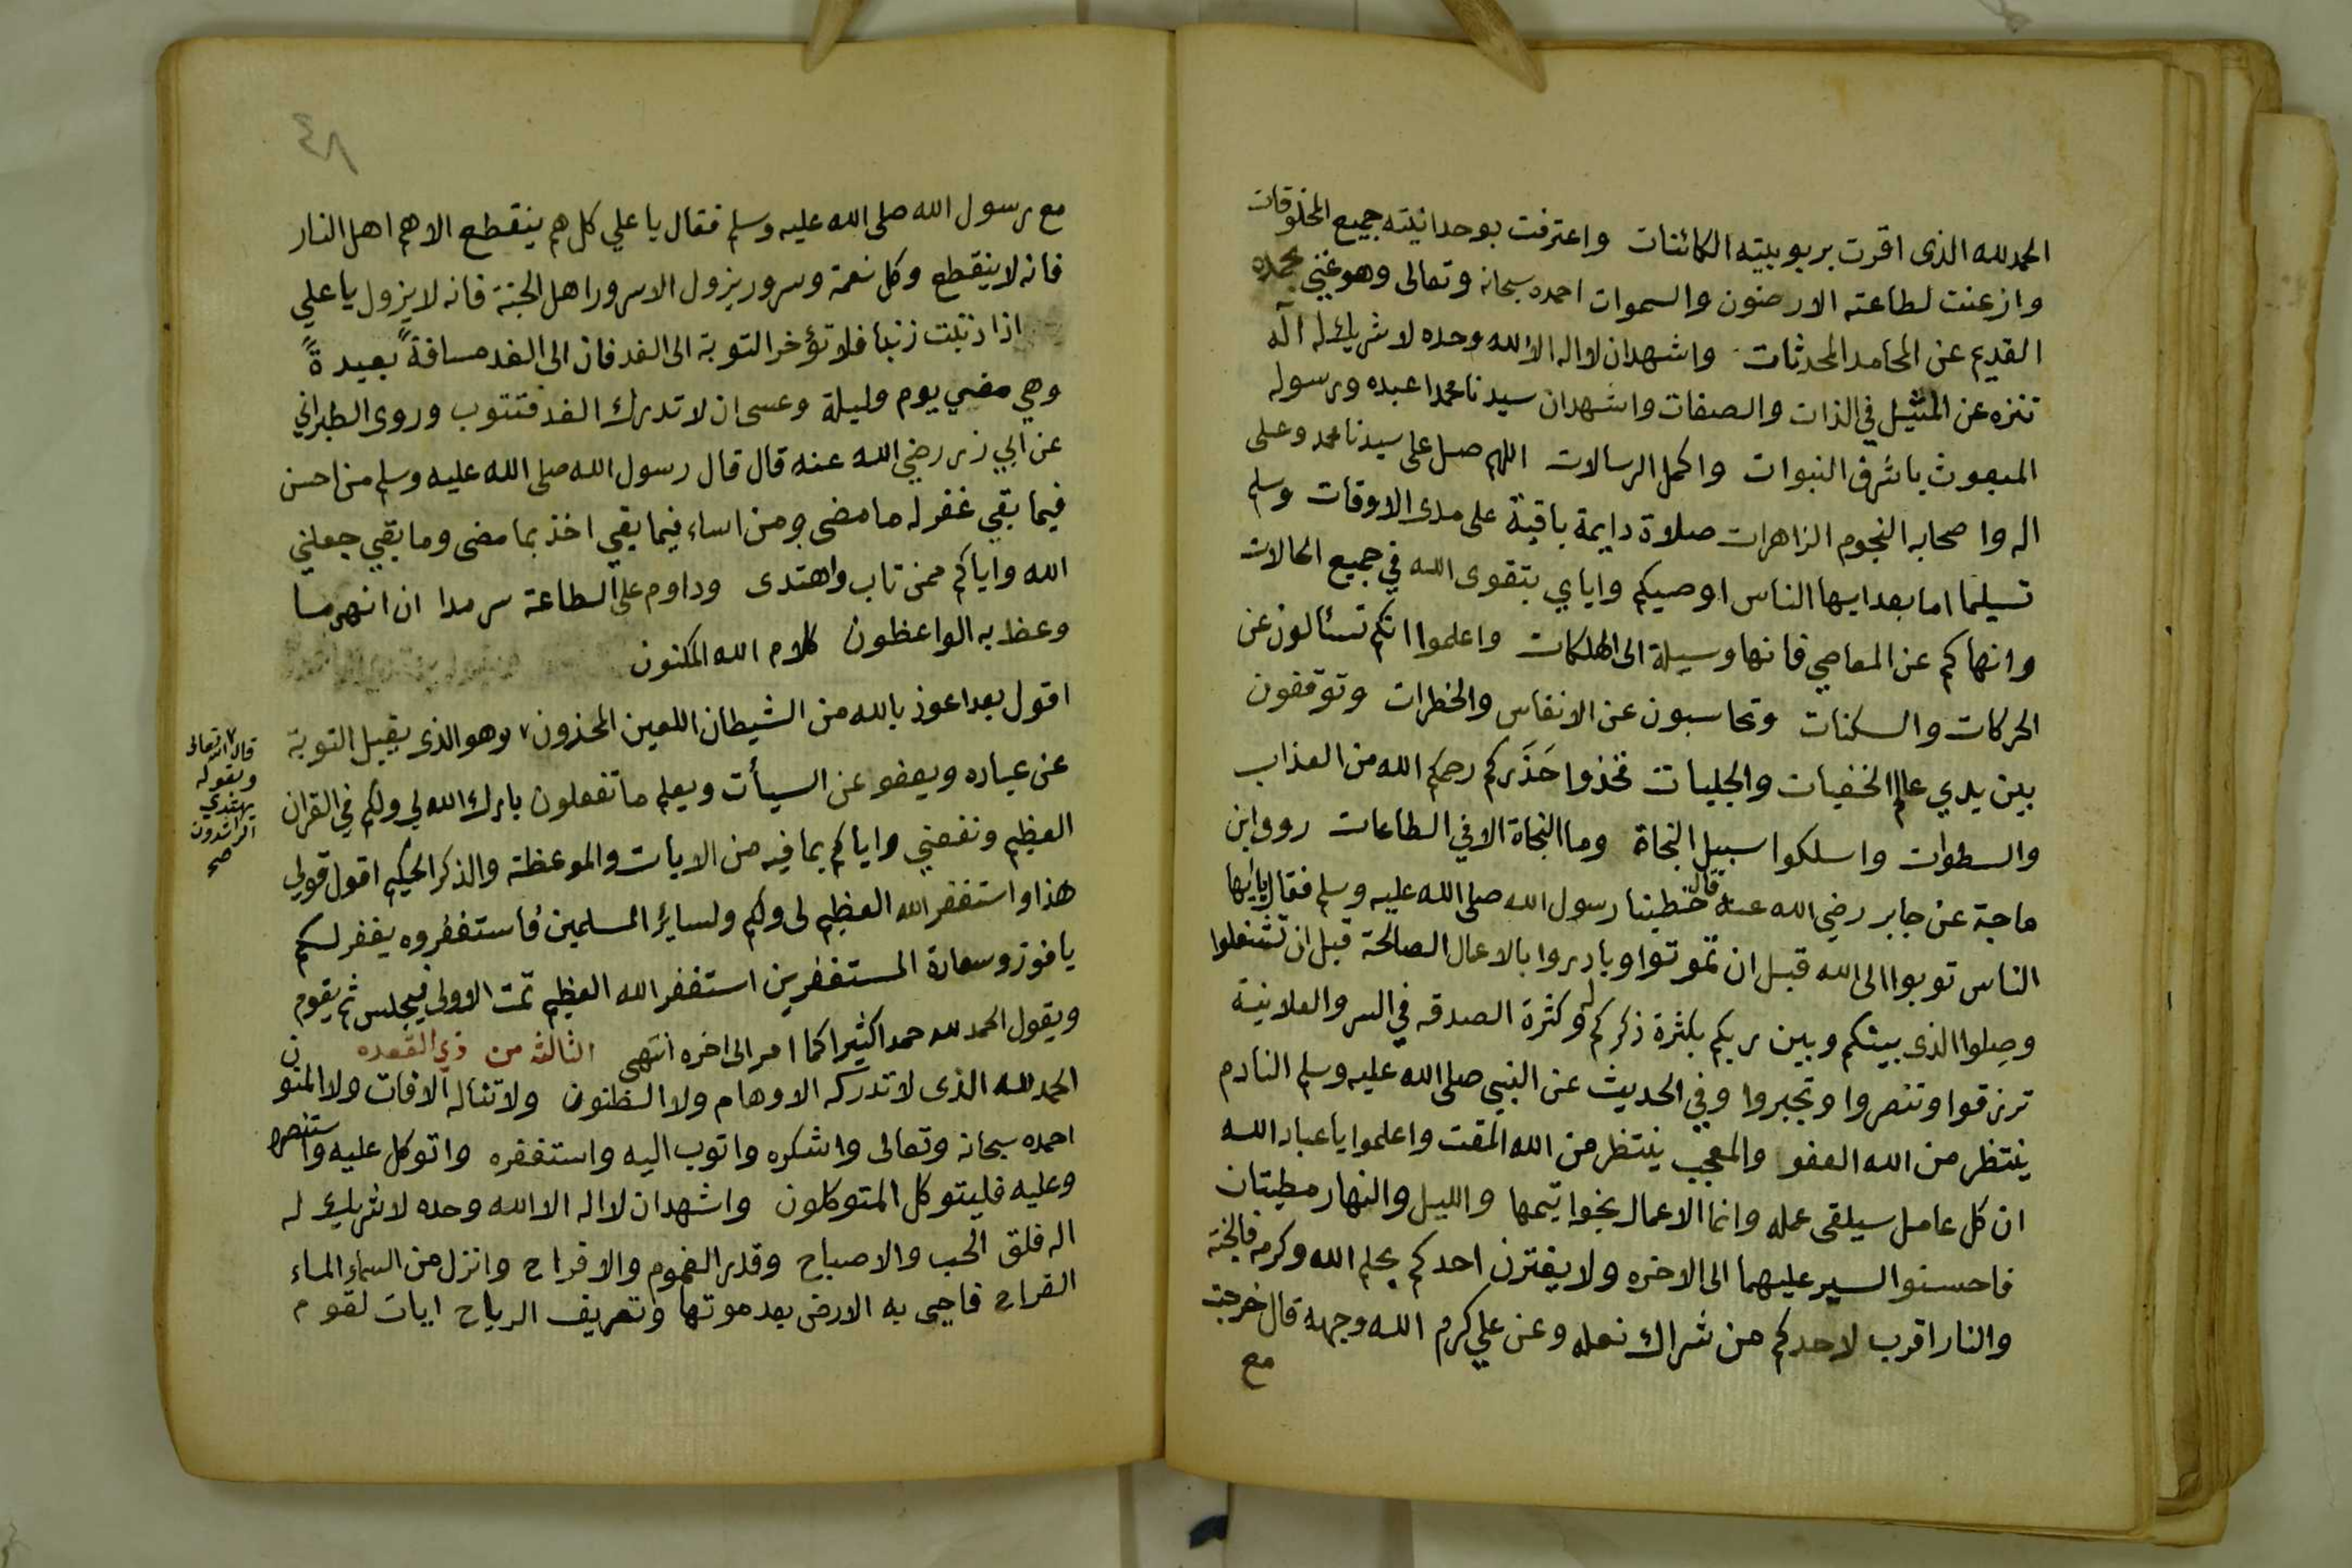 الحمد لله الذى اقرت بربوبيته الكائنات واعترفت بوحدانيته جميع المخلوقات
وازعنت لطاعته الارضون والسموات احمده سبحانه وتعالى وهو غني بحمده
القديم عن المحامد المحدثات واشهد ان لا اله الا الله وحده لا شريك له اله
تنزه عن المثيل في الذات والصفات واشهد ان سيدنا محمدا عبده ورسوله
المبعوث باشرف النبوات واكمل الرسالات اللهم صل على سيدنا محمد وعلى
اله واصحابه النجوم الزاهرات صلاة دايمة باقية على مدى الاوقات وسلم
تسليما اما بعد ايها الناس اوصيكم واياي بتقوى الله في جميع الحالات
وانهاكم عن المعاصي فانها وسيلة الى الهلكات واعلموا انكم تسئالون عن
الحركات والسكنات وتحاسبون عن الانفاس والخطرات وتوقفون
بين يدي عالم الخفيات والجليات فخذوا حَذَركم رحمكم الله من العذاب
والسطوات واسلكوا سبيل النجاة وما النجاة الا في الطاعات روى ابن
ماجة عن جابر رضي الله عنه قال خطبنا رسول الله صلى الله عليه وسلم فقال يا ايها
الناس توبوا الى الله قبل ان تموتوا وبادروا بالاعمال الصالحة قبل ان تشغلوا
وصلوا الذى بينكم وبين ربكم بكثرة ذكركم له وكثرة الصدقه في السر والعلانية
ترزقوا وتنصروا وتجبروا وفي الحديث عن النبي صلى الله عليه وسلم النادم
ينتظر من الله العفو والمعجب ينتظر من الله المقت واعلموا يا عباد الله
ان كل عامل سيلقى عمله وانما الاعمال بخواتيمها والليل والنهار مطيتان
فاحسنوا السير عليهما الى الاخره ولا يغترن احدكم بحلم الله وكرمه فالجنة
والنار اقرب لاحدكم من شراك نعله وعن علي كرم الله وجهه قال خرجت
مع
٨٤
مع رسول الله صلى الله عليه وسلم فقال يا علي كل هم ينقطع الا هم اهل النار
فانه لا ينقطع وكل نعمة وسرور يزول الا سرور اهل الجنة فانه لا يزول يا علي
اذا ذنبت زنبا فلا تؤخر التوبة الى الغد فان الى الغد مسافةً بعيدةً
وهي مضي يوم وليلة وعسى ان لا تدرك الغد فتتوب وروى الطبراني
عن ابي زر رضي الله عنه قال قال رسول الله صلى الله عليه وسلم من احسن
فيما بقي غفر له ما مضى ومن اساء فيما بقي اخذ بما مضى وما بقي جعلني
الله واياكم ممن تاب واهتدى وداوم على الطاعة سرمدا ان انهى ما
وعظ به الواعظون كلام الله المكنون
اقول بعد اعوذ بالله من الشيطان اللعين المحذون ٧ وهو الذى يقبل التوبة
عن عباده ويعفو عن السيأت ويعلم ما تفعلون بارك الله لي ولكم في القران
العظيم ونفعني واياكم بما فيه من الايات والموعظة والذكر الحكيم اقول قولي
هذا واستغفر الله العظيم لى ولكم ولساير المسلمين فاستغفروه يغفر لكم
يا فوز وسعادة المستغفرين استغفر الله العظيم تمت الاولى فيجلس ثم يقوم
ويقول الحمد لله حمدا كثيرا كما امر الى اخره انتهى الثالثه من ذي القعده
الحمد لله الذى لا تدركه الاوهام ولا الظنون ولا تناله الافات ولا المنون
احمده سبحانه وتعالى واشكره واتوب اليه واستغفره واتوكل عليه واستنصره
وعليه فليتوكل المتوكلون واشهد ان لا اله الا الله وحده لا شريك له
اله فلق الحب والاصباح وقدر الغموم والافراح وانزل من السماء الماء
القراح فاحيى به الارض بعد موتها وتصريف الرياح ايات لقوم
٧ قال الله تعالى
وبقوله
يهتدي
الراشدون
صح